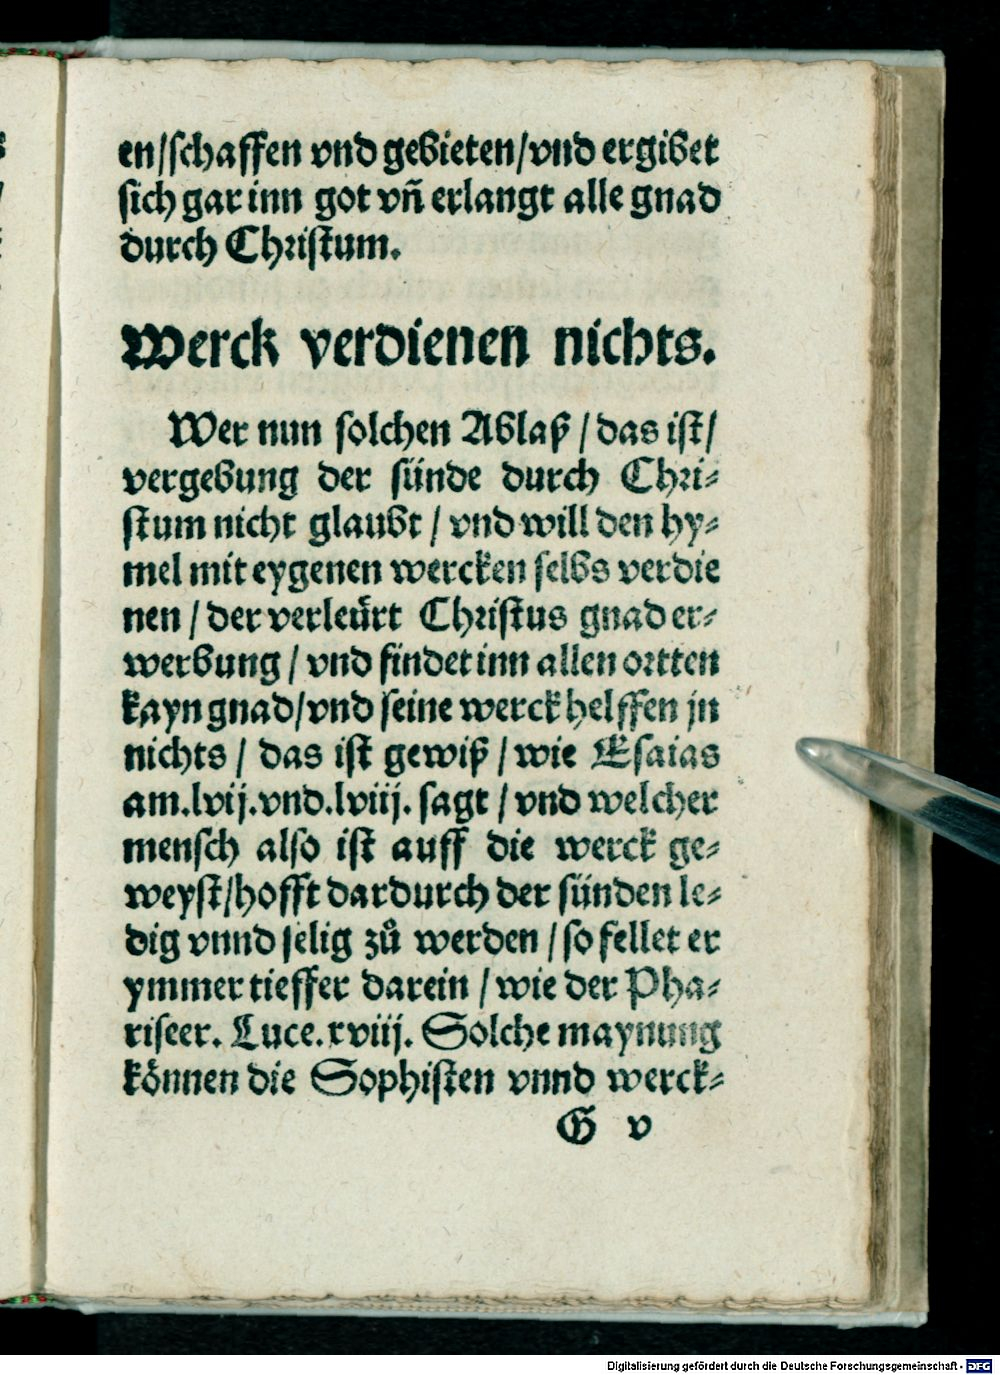 en/schaffen vnd gebieten/vnd ergibet
sich gar inn got vñ erlangt alle gnad
durch Christum.
Werck verdienen nichts.
Wer nun solchen Ablaß / das ist/
vergebung der sünde durch Chri-
stum nicht glaubt / vnd will den hy-
mel mit eygenen wercken selbs verdie
nen / der verleürt Christus gnad er-
werbung / vnd findet inn allen ortten
kayn gnad/vnd seine werck helffen jn
nichts / das ist gewiß / wie Esaias
am.lvij.vnd.lviij. sagt / vnd welcher
mensch also ist auff die werck ge-
weyst/hofft dardurch der sünden le-
dig vnnd selig zů werden / so fellet er
ymmer tieffer darein / wie der Pha-
riseer. Luce.xviij. Solche maynung
können die Sophisten vnnd werck-
G v
Digitalisierung gefördert durch die Deutsche Forschungsgemeinschaft - DFG